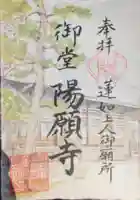 奉拝
蓮如上人御願所
御堂
陽願寺